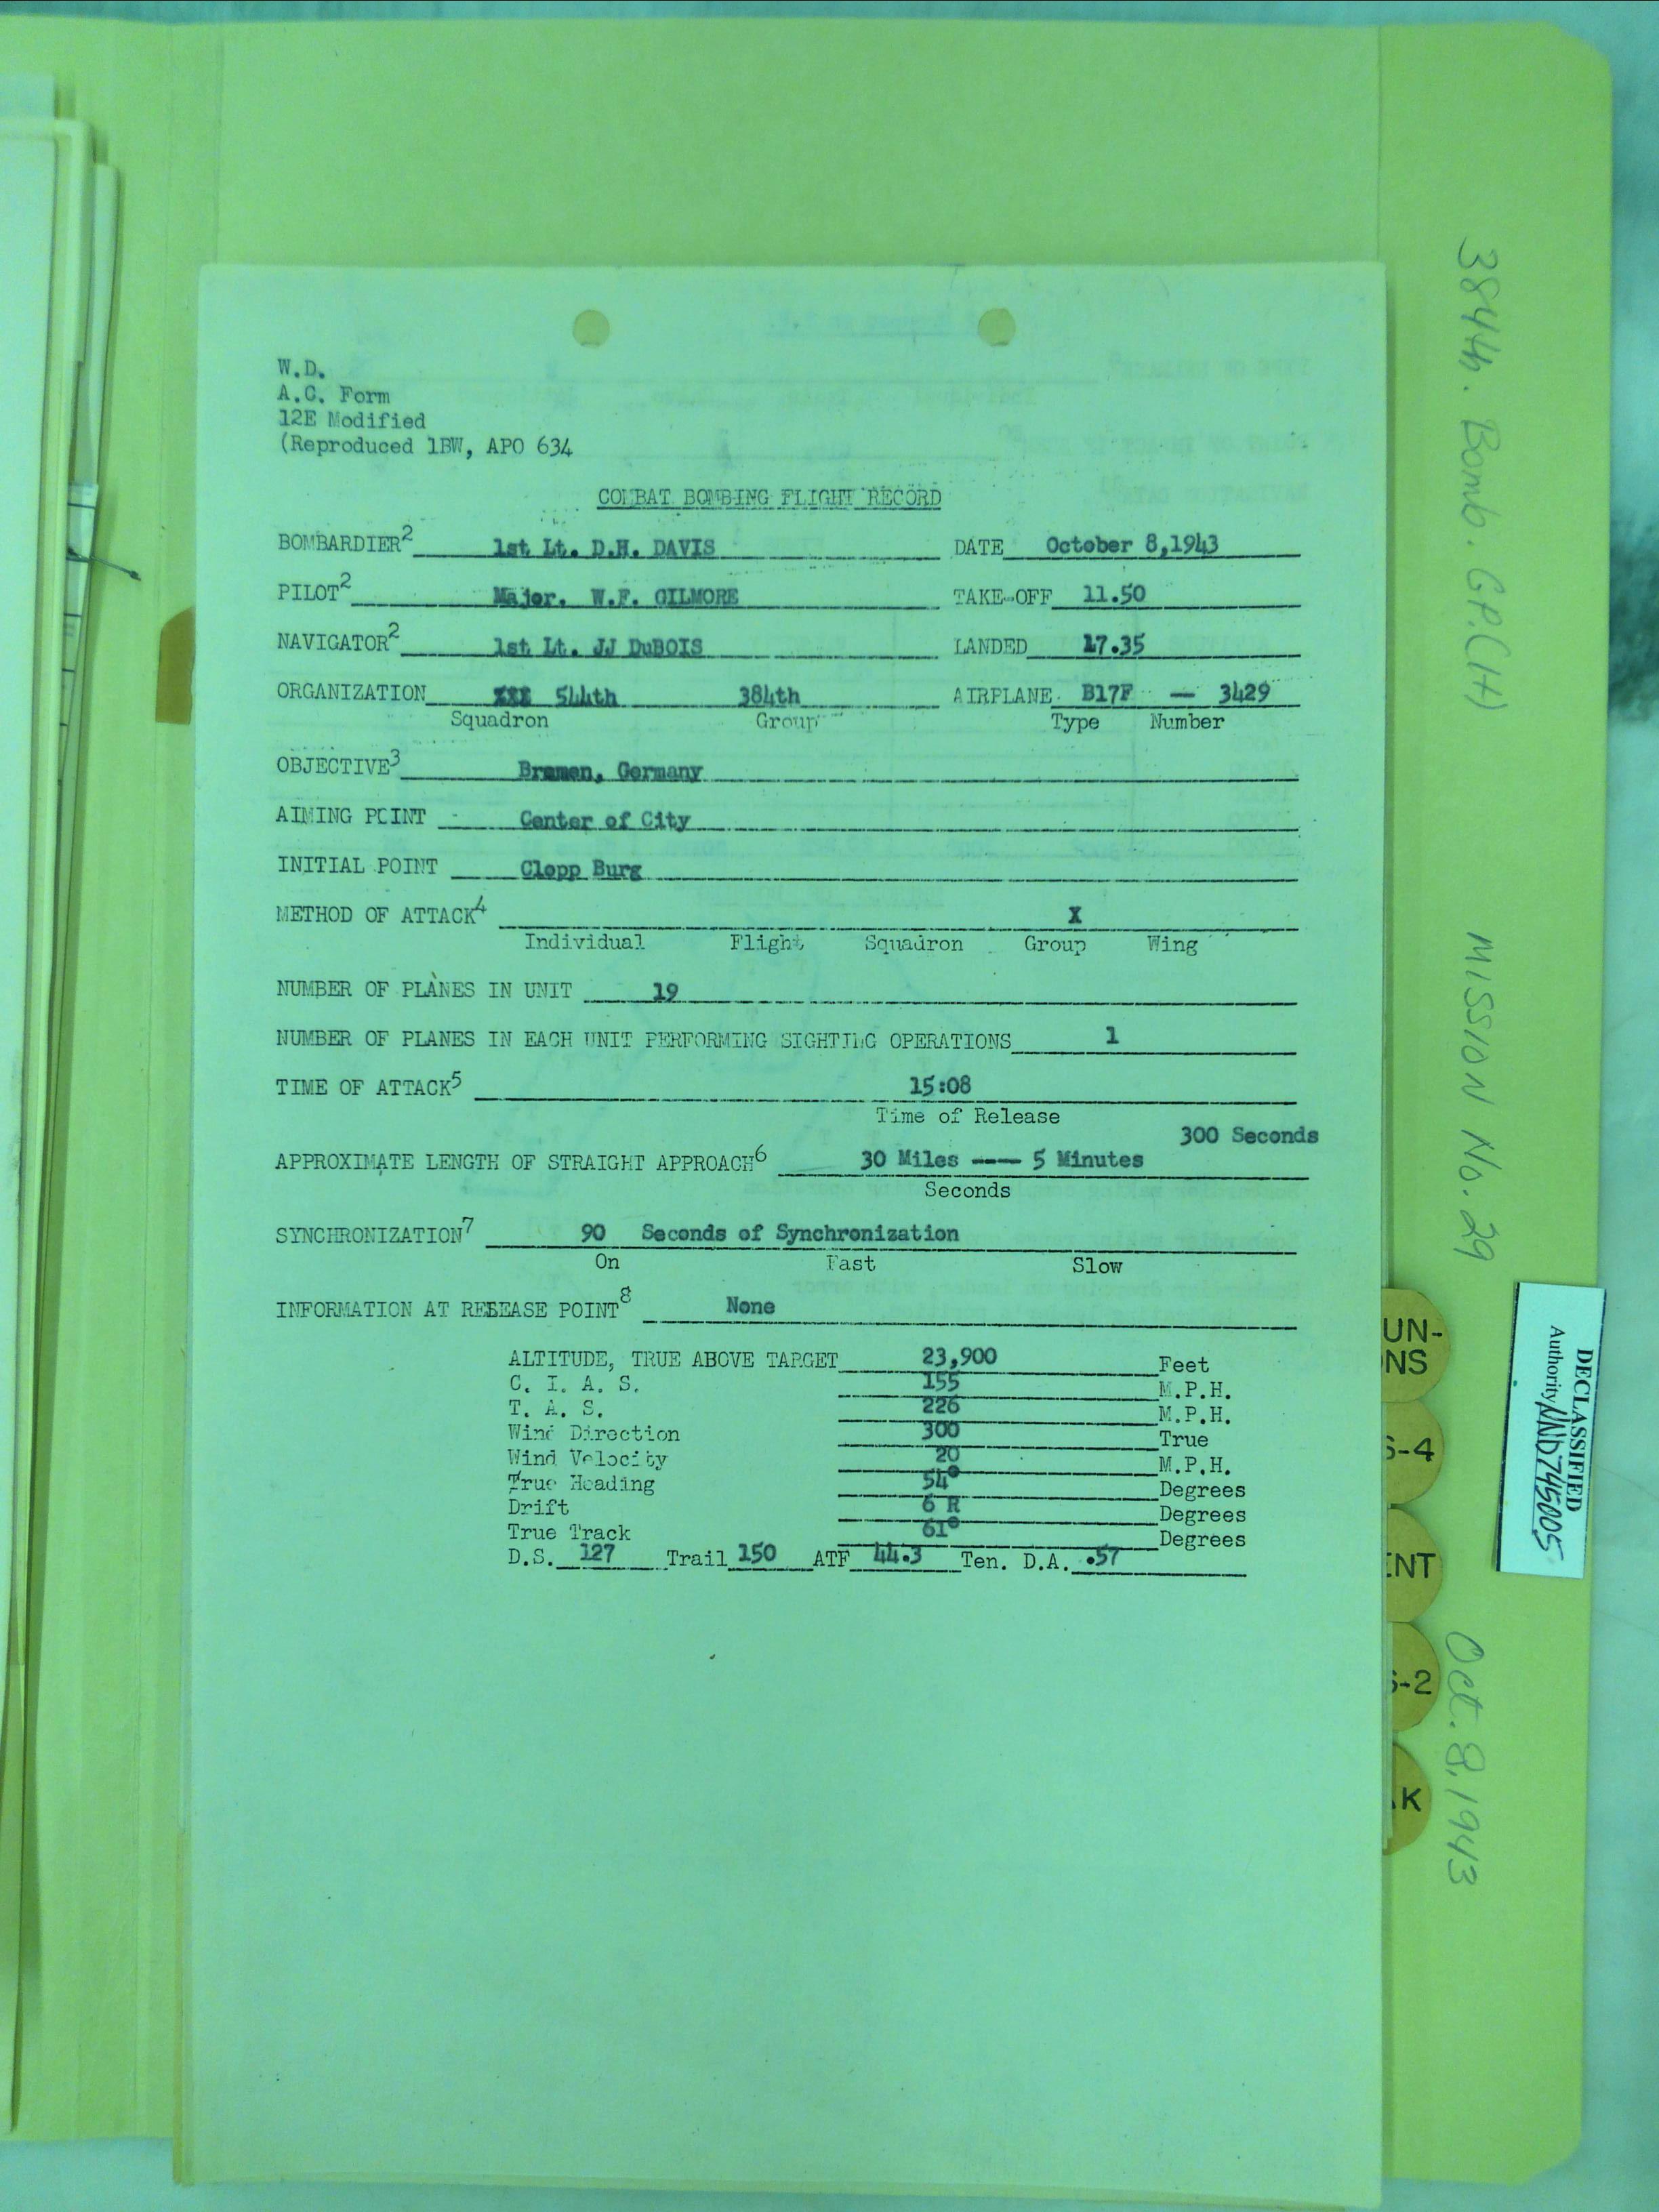 W.D.
A.C. Form
12E Modified
(Reproduced 1BW, APO 634
COMBAT BOMBING FLIGHT RECORD
BOMBARDIER2 1st Lt. D.H. DAVIS DATE October 8,1943
PILOT2 Major. W.F. GILMORE TAKE-OFF 11.50
NAVIGATOR2 1st Lt. JJ DuBOIS LANDED 17.35
ORGANIZATION XXX 544th 384th AIRPLANE B17F — 3429
Squadron Group Type Number
OBJECTIVE3 Bremen, Germany
AIMING POINT Center of City
INITIAL POINT Clopp Burg
METHOD OF ATTACK4 X
Individual Flight Squadron Group Wing
NUMBER OF PLANES IN UNIT 19
NUMBER OF PLANES IN EACH UNIT PERFORMING SIGHTING OPERATIONS 1
TIME OF ATTACK5 15:08
Time of Release
300 Seconds
APPROXIMATE LENGTH OF STRAIGHT APPROACH6 30 Miles ---- 5 Minutes
Seconds
SYNCHRONIZATION7 90 Seconds of Synchronization
On Fast Slow
INFORMATION AT RELEASE POINT8 None
ALTITUDE, TRUE ABOVE TARGET 23,900 Feet
C. I. A. S. 155 M.P.H.
T. A. S. 226 M.P.H.
Wind Direction 300 True
Wind Velocity 20 M.P.H.
True Heading 54° Degrees
Drift 6 R Degrees
True Track 61° Degrees
D.S. 127 Trail 150 ATF 44.3 Ten. D.A. .57
384th. Bomb. GP.(H) MISSION No. 29 Oct. 8, 1943
DECLASSIFIED
Authority NND745005
UN-
NS
S-4
ENT
S-2
K